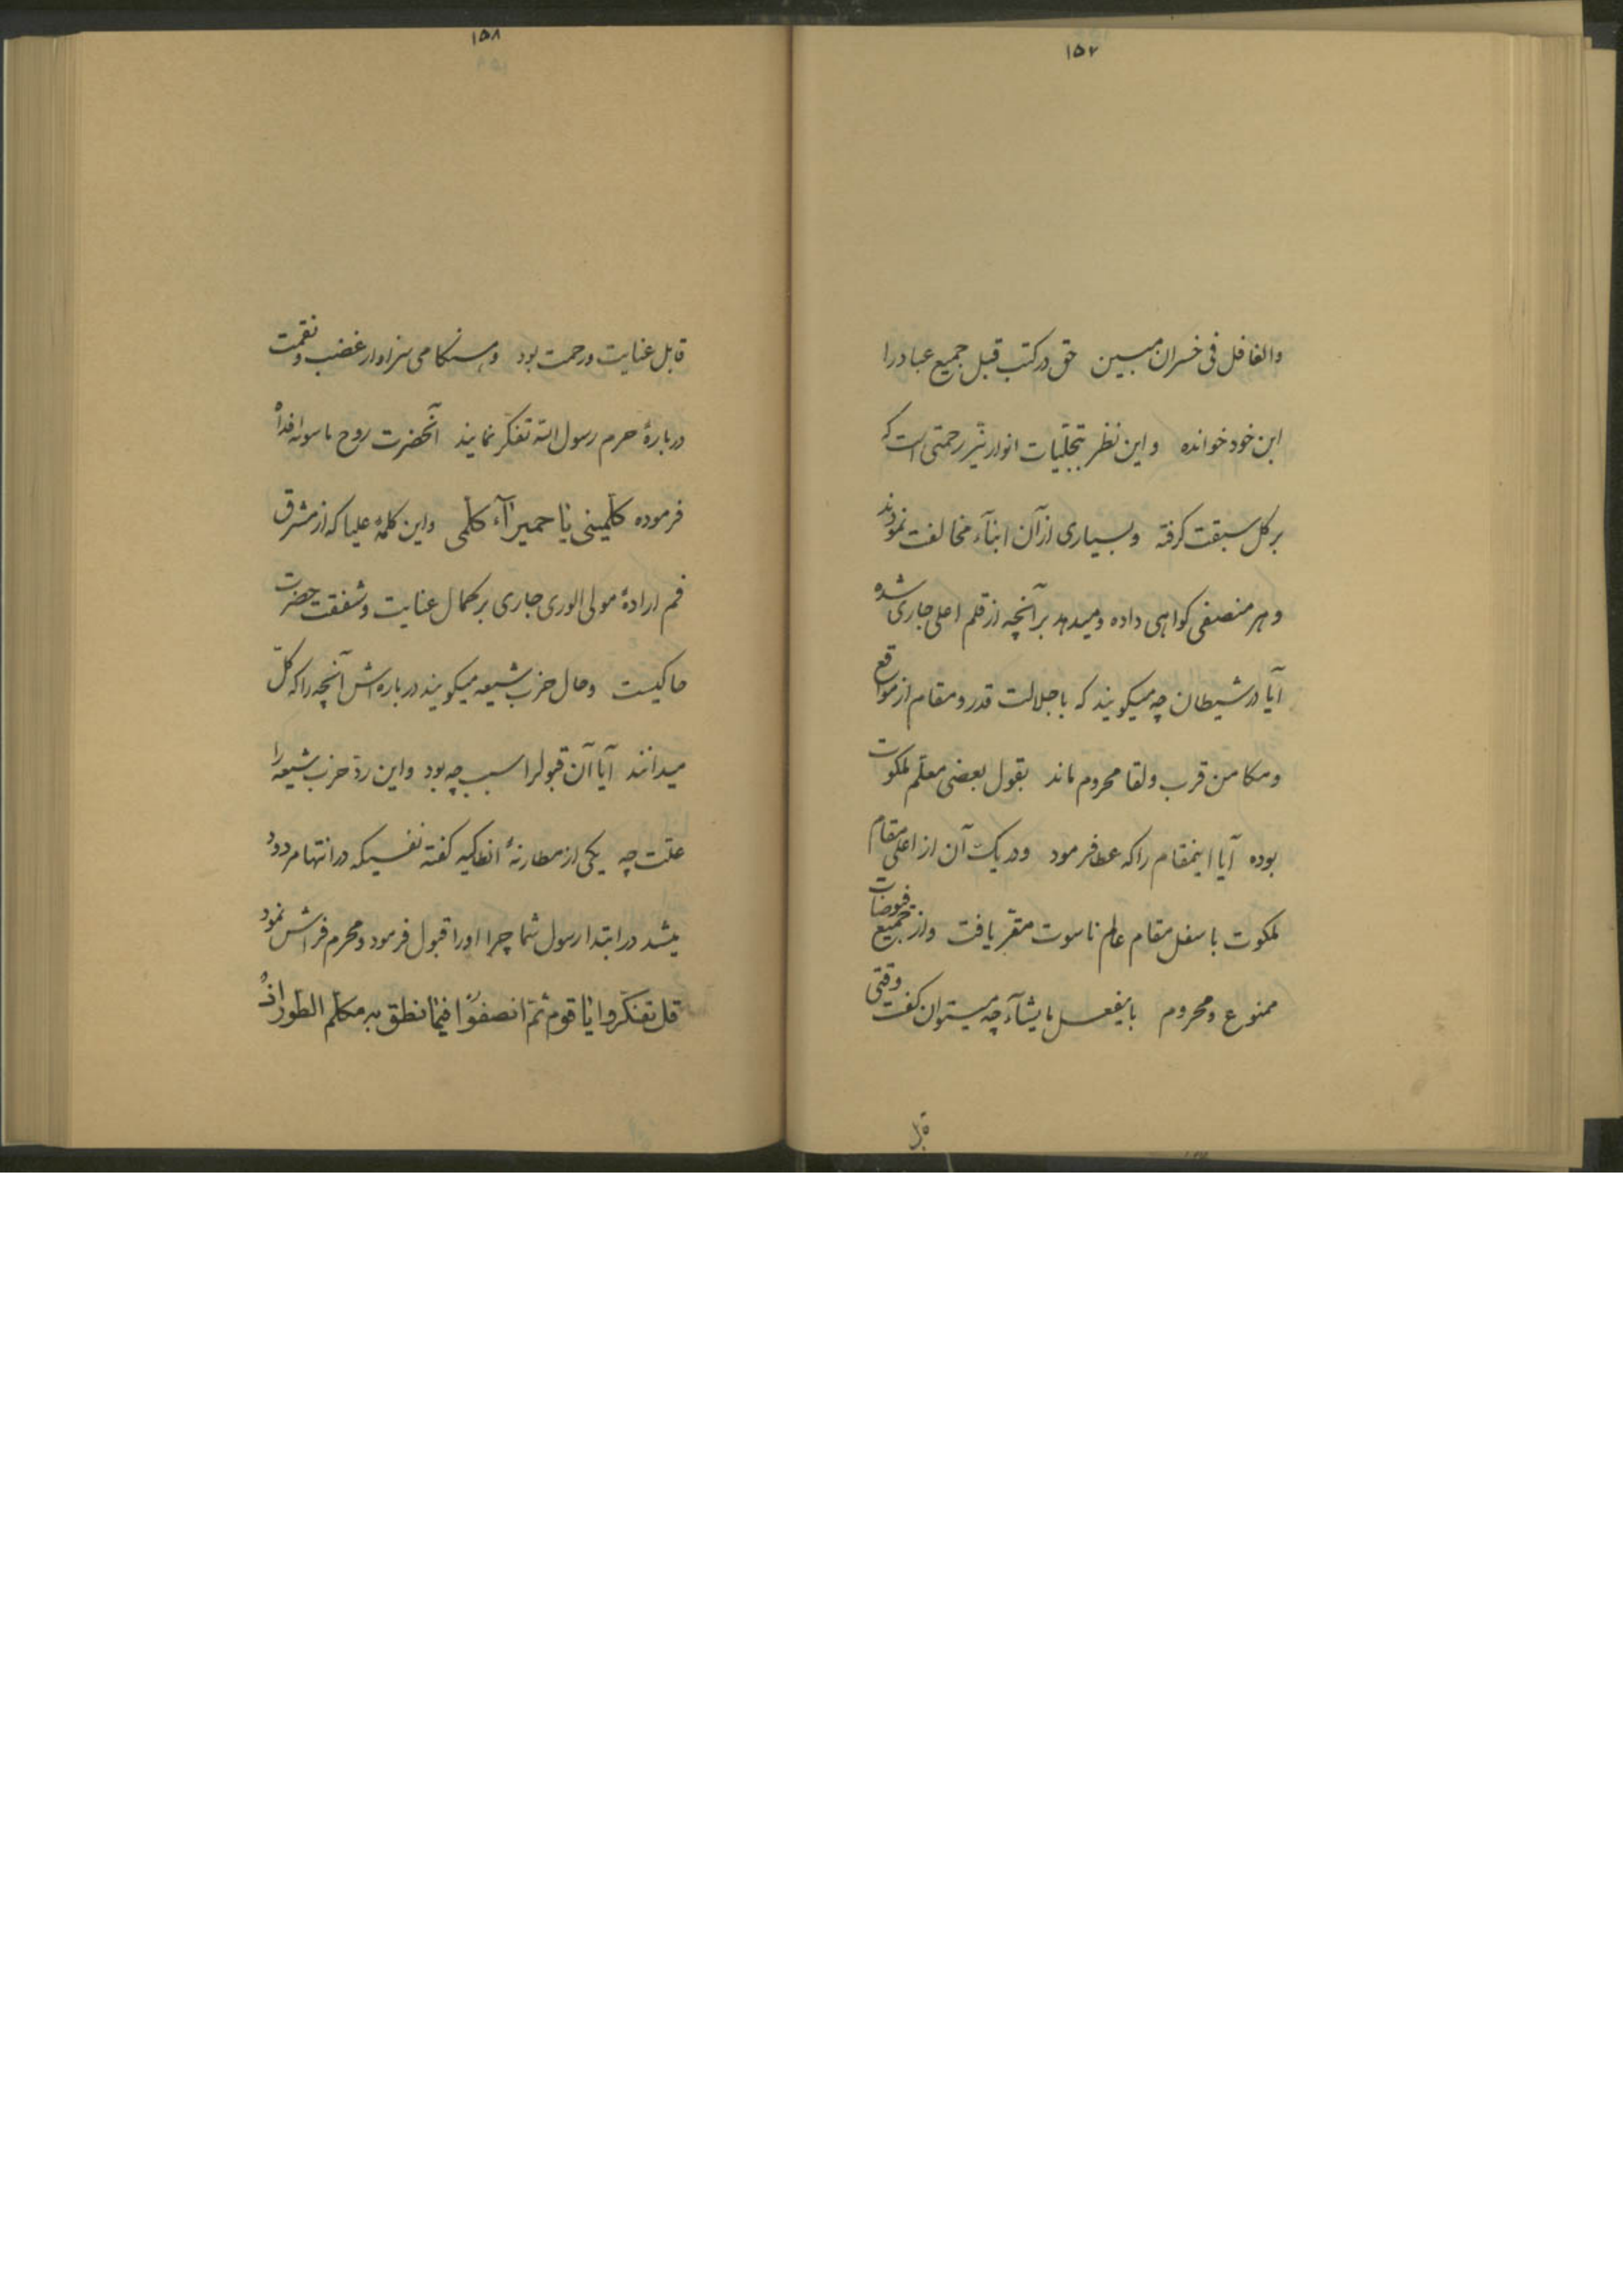 ۱۵۷
والغافل فی خسران مبین حق در کتب قبل جمیع عباد را
ابن خود خوانده و این نظر بتجلّیات انوار نیّر رحمتی است که
بر کل سبقت گرفته و بسیاری از آن ابنآء مخالفت نمودند
و هر منصفی گواهی داده و میدهد بر آنچه از قلم اعلی جاری شده
آیا در شیطان چه میگویند که با جلالت قدر و مقام از مواقع
و مکامن قرب و لقا محروم ماند بقول بعضی معلّم ملکوت
بوده آیا اینمقام را که عطا فرمود و در یک آن از اعلی مقام
ملکوت باسفل مقام عالم ناسوت مقرّ یافت و از جمیع فیوضات
ممنوع و محروم با یفعل ما یشآء چه میتوان گفت وقتی
قابل
۱۵۸
قابل عنایت و رحمت بود و هنگامی سزاوار غضب و نقمت
دربارهٔ حرم رسول الله تفکّر نمایند آنحضرت روح ما سواه فداه
فرموده کلّمینی یا حمیرآء کلّمی و این کلمهٔ علیا که از مشرق
فم ارادهٔ مولی الوری جاری بر کمال عنایت و شفقت حضرت
حاکیست و حال حزب شیعه میگویند درباره‌اش آنچه را که کلّ
میدانند آیا آن قبول را سبب چه بود و این ردّ حزب شیعه را
علّت چه یکی از مطارنهٔ انطاکیه گفته نفسیکه در انتها مردود
میشد در ابتدا رسول شما چرا او را قبول فرمود و محرم فراش نمود
قل تفکّروا یا قوم ثمّ انصفوا فیما نطق به مکلّم الطور اذ